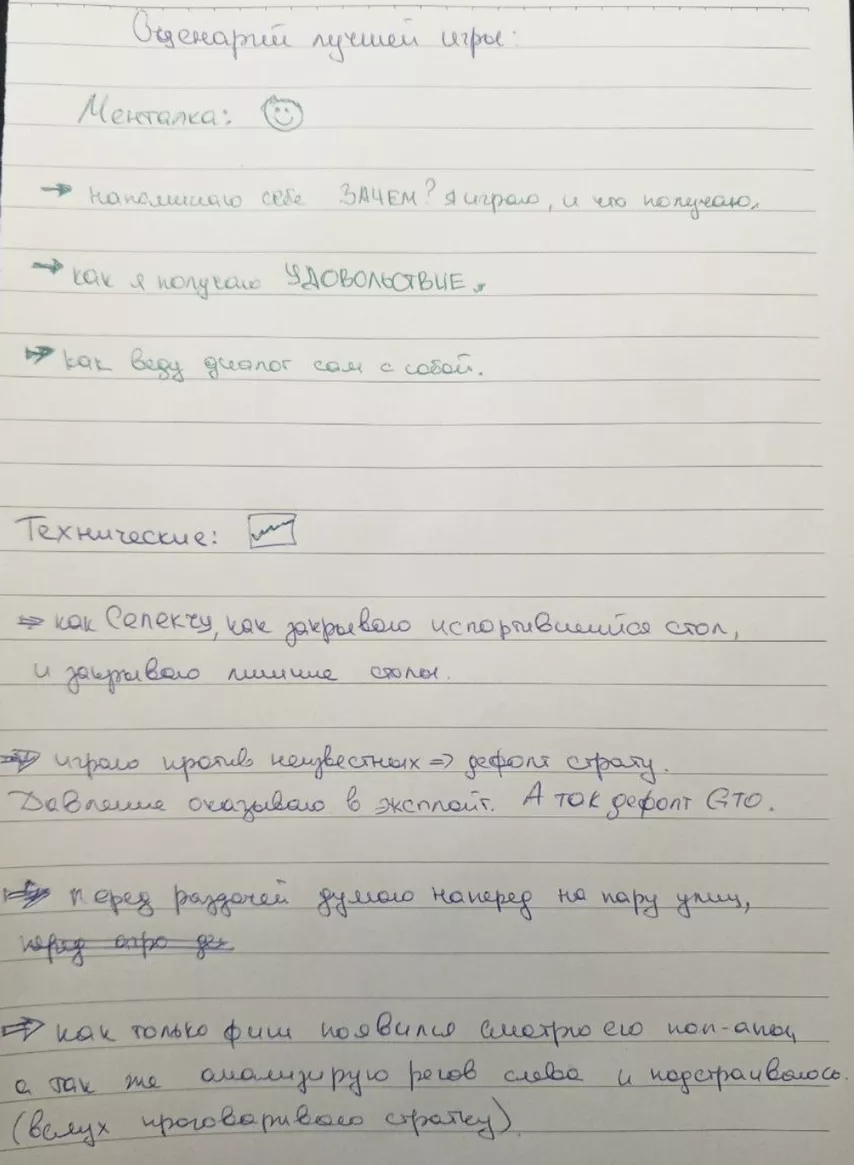 Сценарий лучшей игры:
Менталка:
→ напоминаю себе ЗАЧЕМ? я играю, и что получаю.
→ как я получаю УДОВОЛЬСТВИЕ.
→ как веду диалог сам с собой.
Технические:
⇒ как Селекчу, как закрываю испортившийся стол,
и закрываю лишние столы.
⇒ играю против неизвестных => дефолт страту.
Давление оказываю в эксплойт. А так дефолт GTO.
⇒ перед раздачей думаю наперед на пару улиц,
⇒ как только фиш появился смотрю его поп-апы,
а так же анализирую регов слева и подстраиваюсь.
(вслух проговариваю стратку)